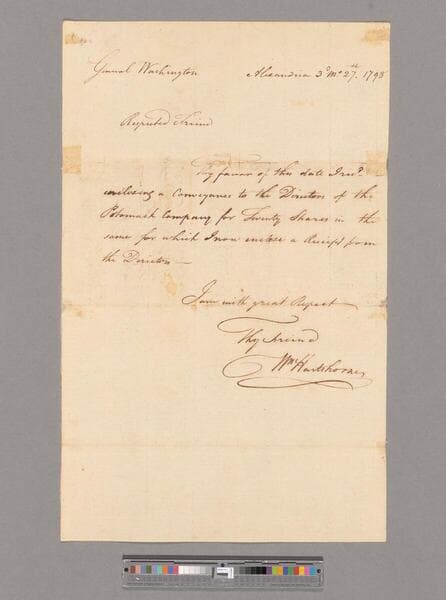 General Washington Alexandria 3d Mo 27th. 1798
Respected Friend
Thy favor of this date I recd.
enclosing a Conveyance to the Directors of the
Potomack Company for Twenty Shares in the
same for which I now enclose a Receipt from
the Directors —
I am with great Respect
Thy Friend
Wm Hartshorne